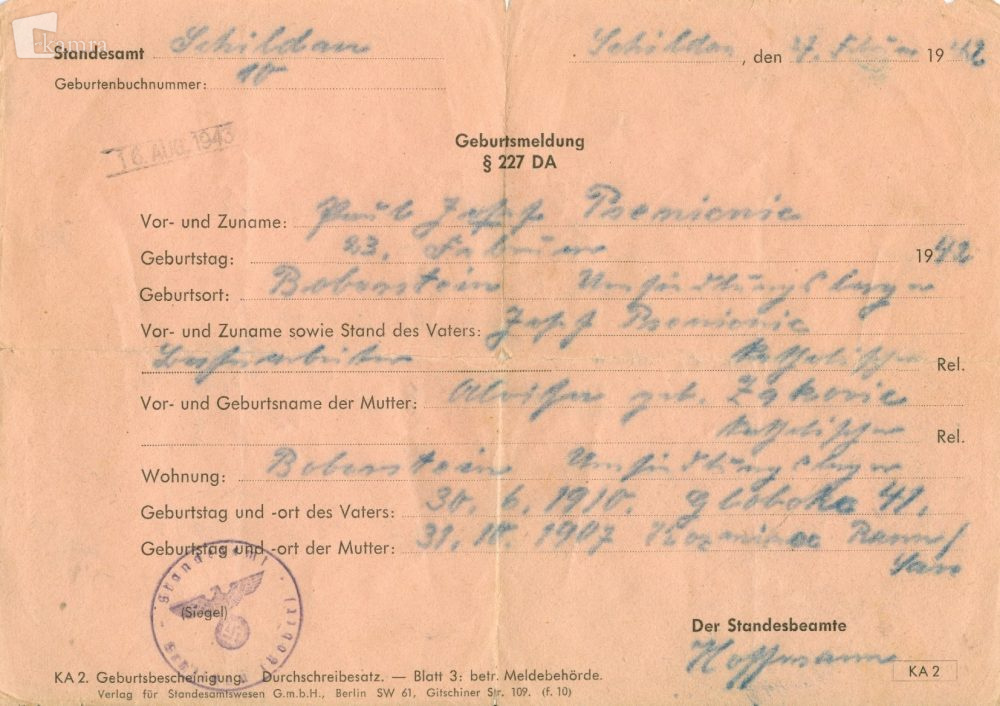 kamra
Standesamt Schildau Schildau, den 27. Februar 1942
Geburtenbuchnummer: 10
16. AUG. 1943
Geburtsmeldung
§ 227 DA
Vor- und Zuname: Paul Josef Psenicnic
Geburtstag: 23. Februar 1942
Geburtsort: Boberstein Umsiedlungslager
Vor- und Zuname sowie Stand des Vaters: Josef Psenicnic
katholischer Rel.
Vor- und Geburtsname der Mutter: geb.
katholischer Rel.
Wohnung: Boberstein Umsiedlungslager
Geburtstag und -ort des Vaters: 30. 6. 1910. Globoko 41.
Geburtstag und -ort der Mutter: 31. 10. 1907 Rann/
Save
Standesamt
(Siegel)
Der Standesbeamte
Hoffmann
KA 2. Geburtsbescheinigung. Durchschreibesatz. — Blatt 3: betr. Meldebehörde. KA 2
Verlag für Standesamtswesen G.m.b.H., Berlin SW 61, Gitschiner Str. 109. (F. 10)